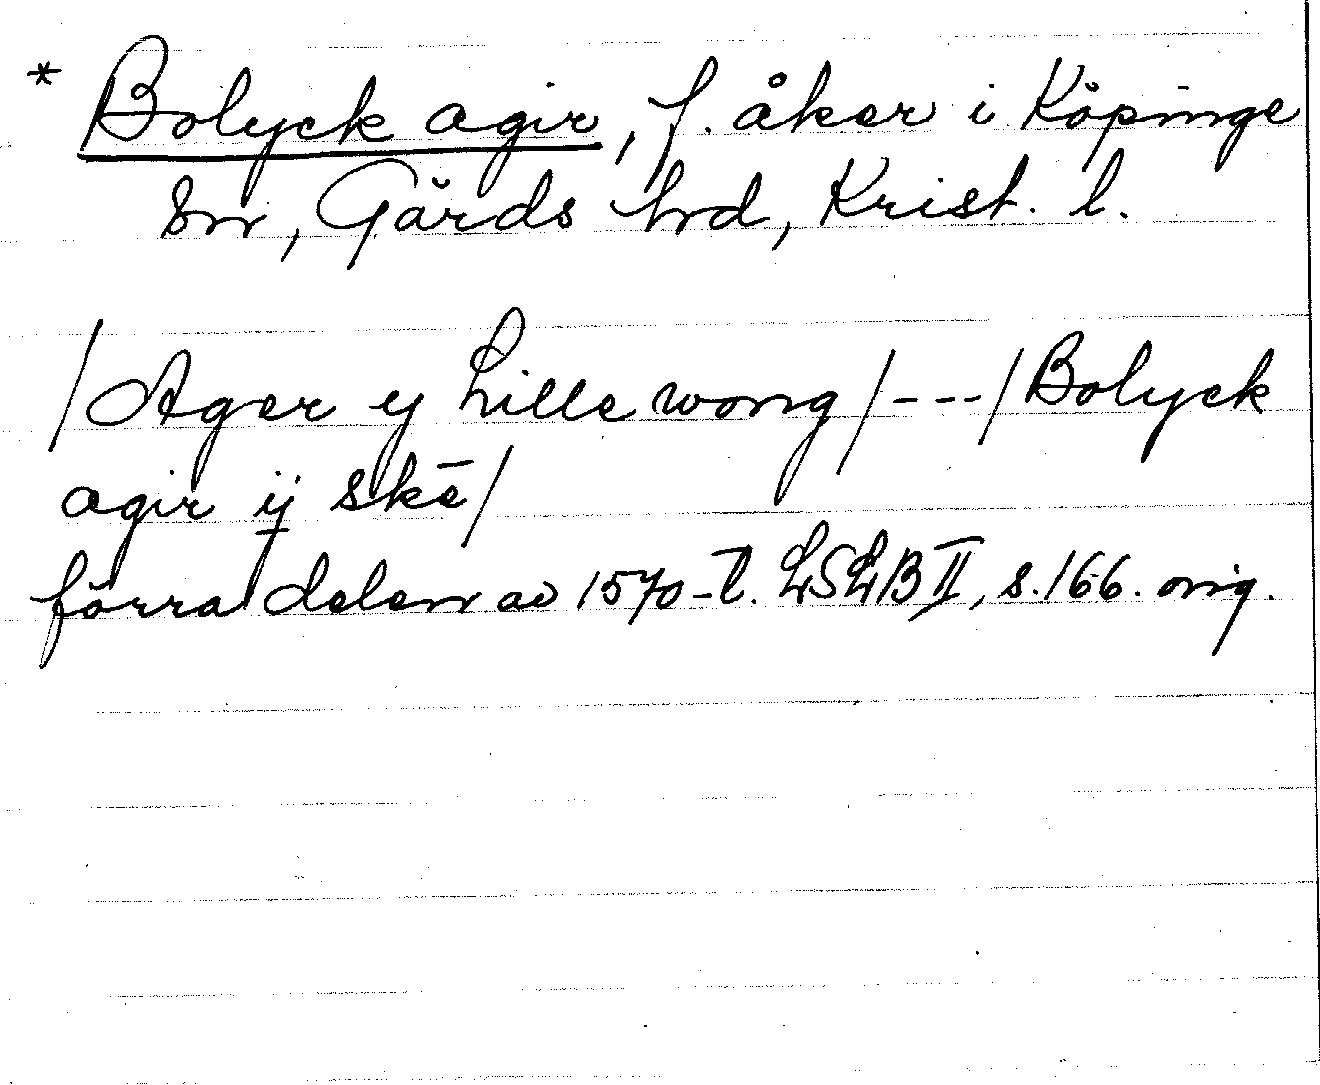 * Bolyck agir, f. åker i Köpinge
sn, Gärds hrd, Krist. l.
/Ager y Lille wong/---/Bolyck
agir ij skē/
förra delen av 1570-t. LSLB II, s. 166. orig.